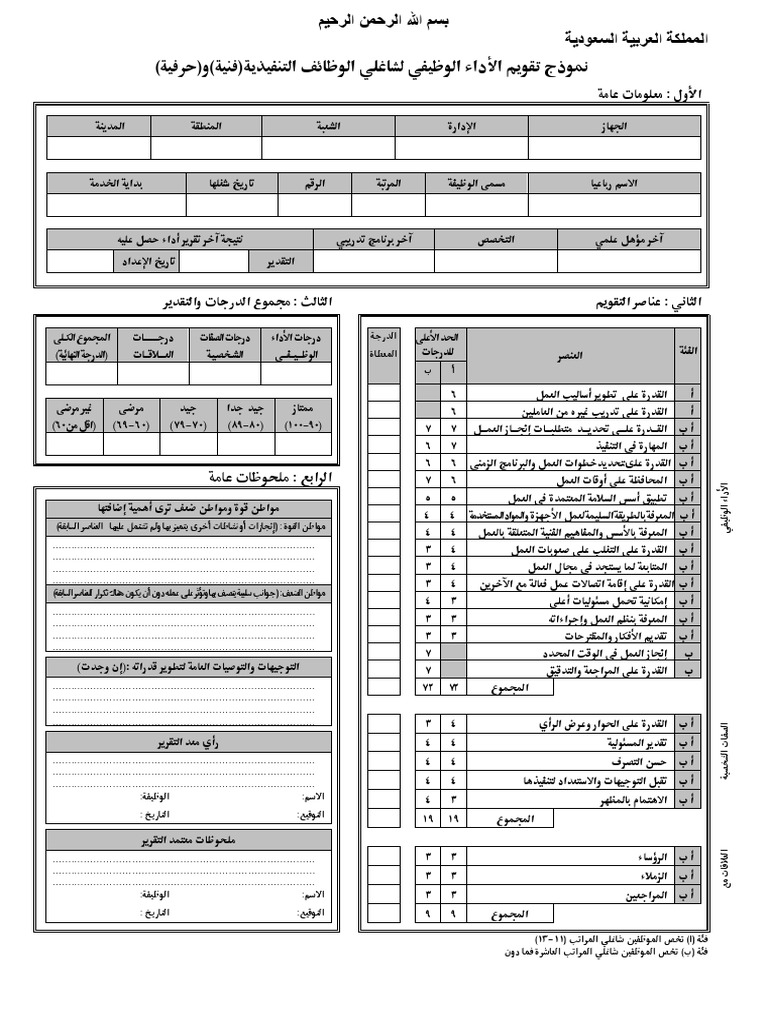 بسم الله الرحمن الرحيم
المملكة العربية السعودية
نموذج تقويم الأداء الوظيفي لشاغلي الوظائف التنفيذية(فنية)و(حرفية)
الأول : معلومات عامة
الجهاز الإدارة الشعبة المنطقة المدينة
الاسم رباعيا مسمى الوظيفة المرتبة الرقم تاريخ شغلها بداية الخدمة
آخر مؤهل علمي التخصص آخر برنامج تدريبي نتيجة آخر تقرير أداء حصل عليه
التقدير تاريخ الإعداد
الثاني : عناصر التقويم
الفئة العنصر الحد الأعلى للدرجات الدرجة المعطاة
أ ب
أ القدرة على تطوير أساليب العمل ٦
أ القدرة على تدريب غيره من العاملين ٦
أ ب القدرة على تحديد متطلبات إنجاز العمل ٧ ٧
أ ب المهارة في التنفيذ ٧ ٦
أ ب القدرة على تحديد خطوات العمل والبرنامج الزمني ٦ ٦
أ ب المحافظة على أوقات العمل ٦ ٧
أ ب تطبيق أسس السلامة المعتمدة في العمل ٥ ٥
أ ب المعرفة بالطريقة السليمة لعمل الأجهزة والمواد المستخدمة ٤ ٤
أ ب المعرفة بالأسس والمفاهيم الفنية المتعلقة بالعمل ٤ ٤
أ ب القدرة على التغلب على صعوبات العمل ٤ ٣
أ ب المتابعة لما يستجد في مجال العمل ٤ ٣
أ ب القدرة على إقامة اتصالات عمل فعالة مع الآخرين ٤ ٣
أ ب إمكانية تحمل مسئوليات أعلى ٣ ٤
أ ب المعرفة بنظم العمل وإجراءاته ٣ ٣
أ ب تقديم الأفكار والمقترحات ٣ ٣
ب إنجاز العمل في الوقت المحدد ٧
ب القدرة على المراجعة والتدقيق ٧
المجموع ٧٢ ٧٢
الأداء الوظيفي
أ ب القدرة على الحوار وعرض الرأي ٤ ٣
أ ب تقدير المسئولية ٤ ٤
أ ب حسن التصرف ٤ ٤
أ ب تقبل التوجيهات والاستعداد لتنفيذها ٤ ٤
أ ب الاهتمام بالمظهر ٣ ٤
المجموع ١٩ ١٩
الصفات الشخصية
أ ب الرؤساء ٣ ٣
أ ب الزملاء ٣ ٣
أ ب المراجعين ٣ ٣
المجموع ٩ ٩
العلاقات مع
فئة (أ) تخص الموظفين شاغلي المراتب (١١-١٣)
فئة (ب) تخص الموظفين شاغلي المراتب العاشرة فما دون
الثالث : مجموع الدرجات والتقدير
درجات الأداء الوظيفي درجات الصفات الشخصية درجات العلاقات المجموع الكلي (الدرجة النهائية)
ممتاز جيد جدا جيد مرضي غير مرضي
(٩٠-١٠٠) (٨٠-٨٩) (٧٠-٧٩) (٦٠-٦٩) (أقل من ٦٠)
الرابع : ملحوظات عامة
مواطن قوة ومواطن ضعف ترى أهمية إضافتها
مواطن القوة : (إنجازات أو نشاطات أخرى يتميز بها ولم تشتمل عليها العناصر السابقة)
مواطن الضعف : (جوانب سلبية يتصف بها وتؤثر على عمله دون أن يكون هناك تكرار للعناصر السابقة)
التوجيهات والتوصيات العامة لتطوير قدراته :(إن وجدت)
رأي معد التقرير
الاسم: الوظيفة:
التوقيع: التاريخ :
ملحوظات معتمد التقرير
الاسم: الوظيفة:
التوقيع: التاريخ :